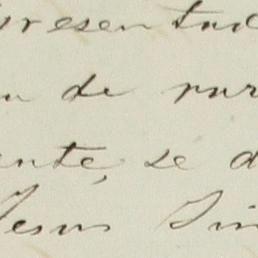 presentad
de rur
ente, se d
Jesus Sim